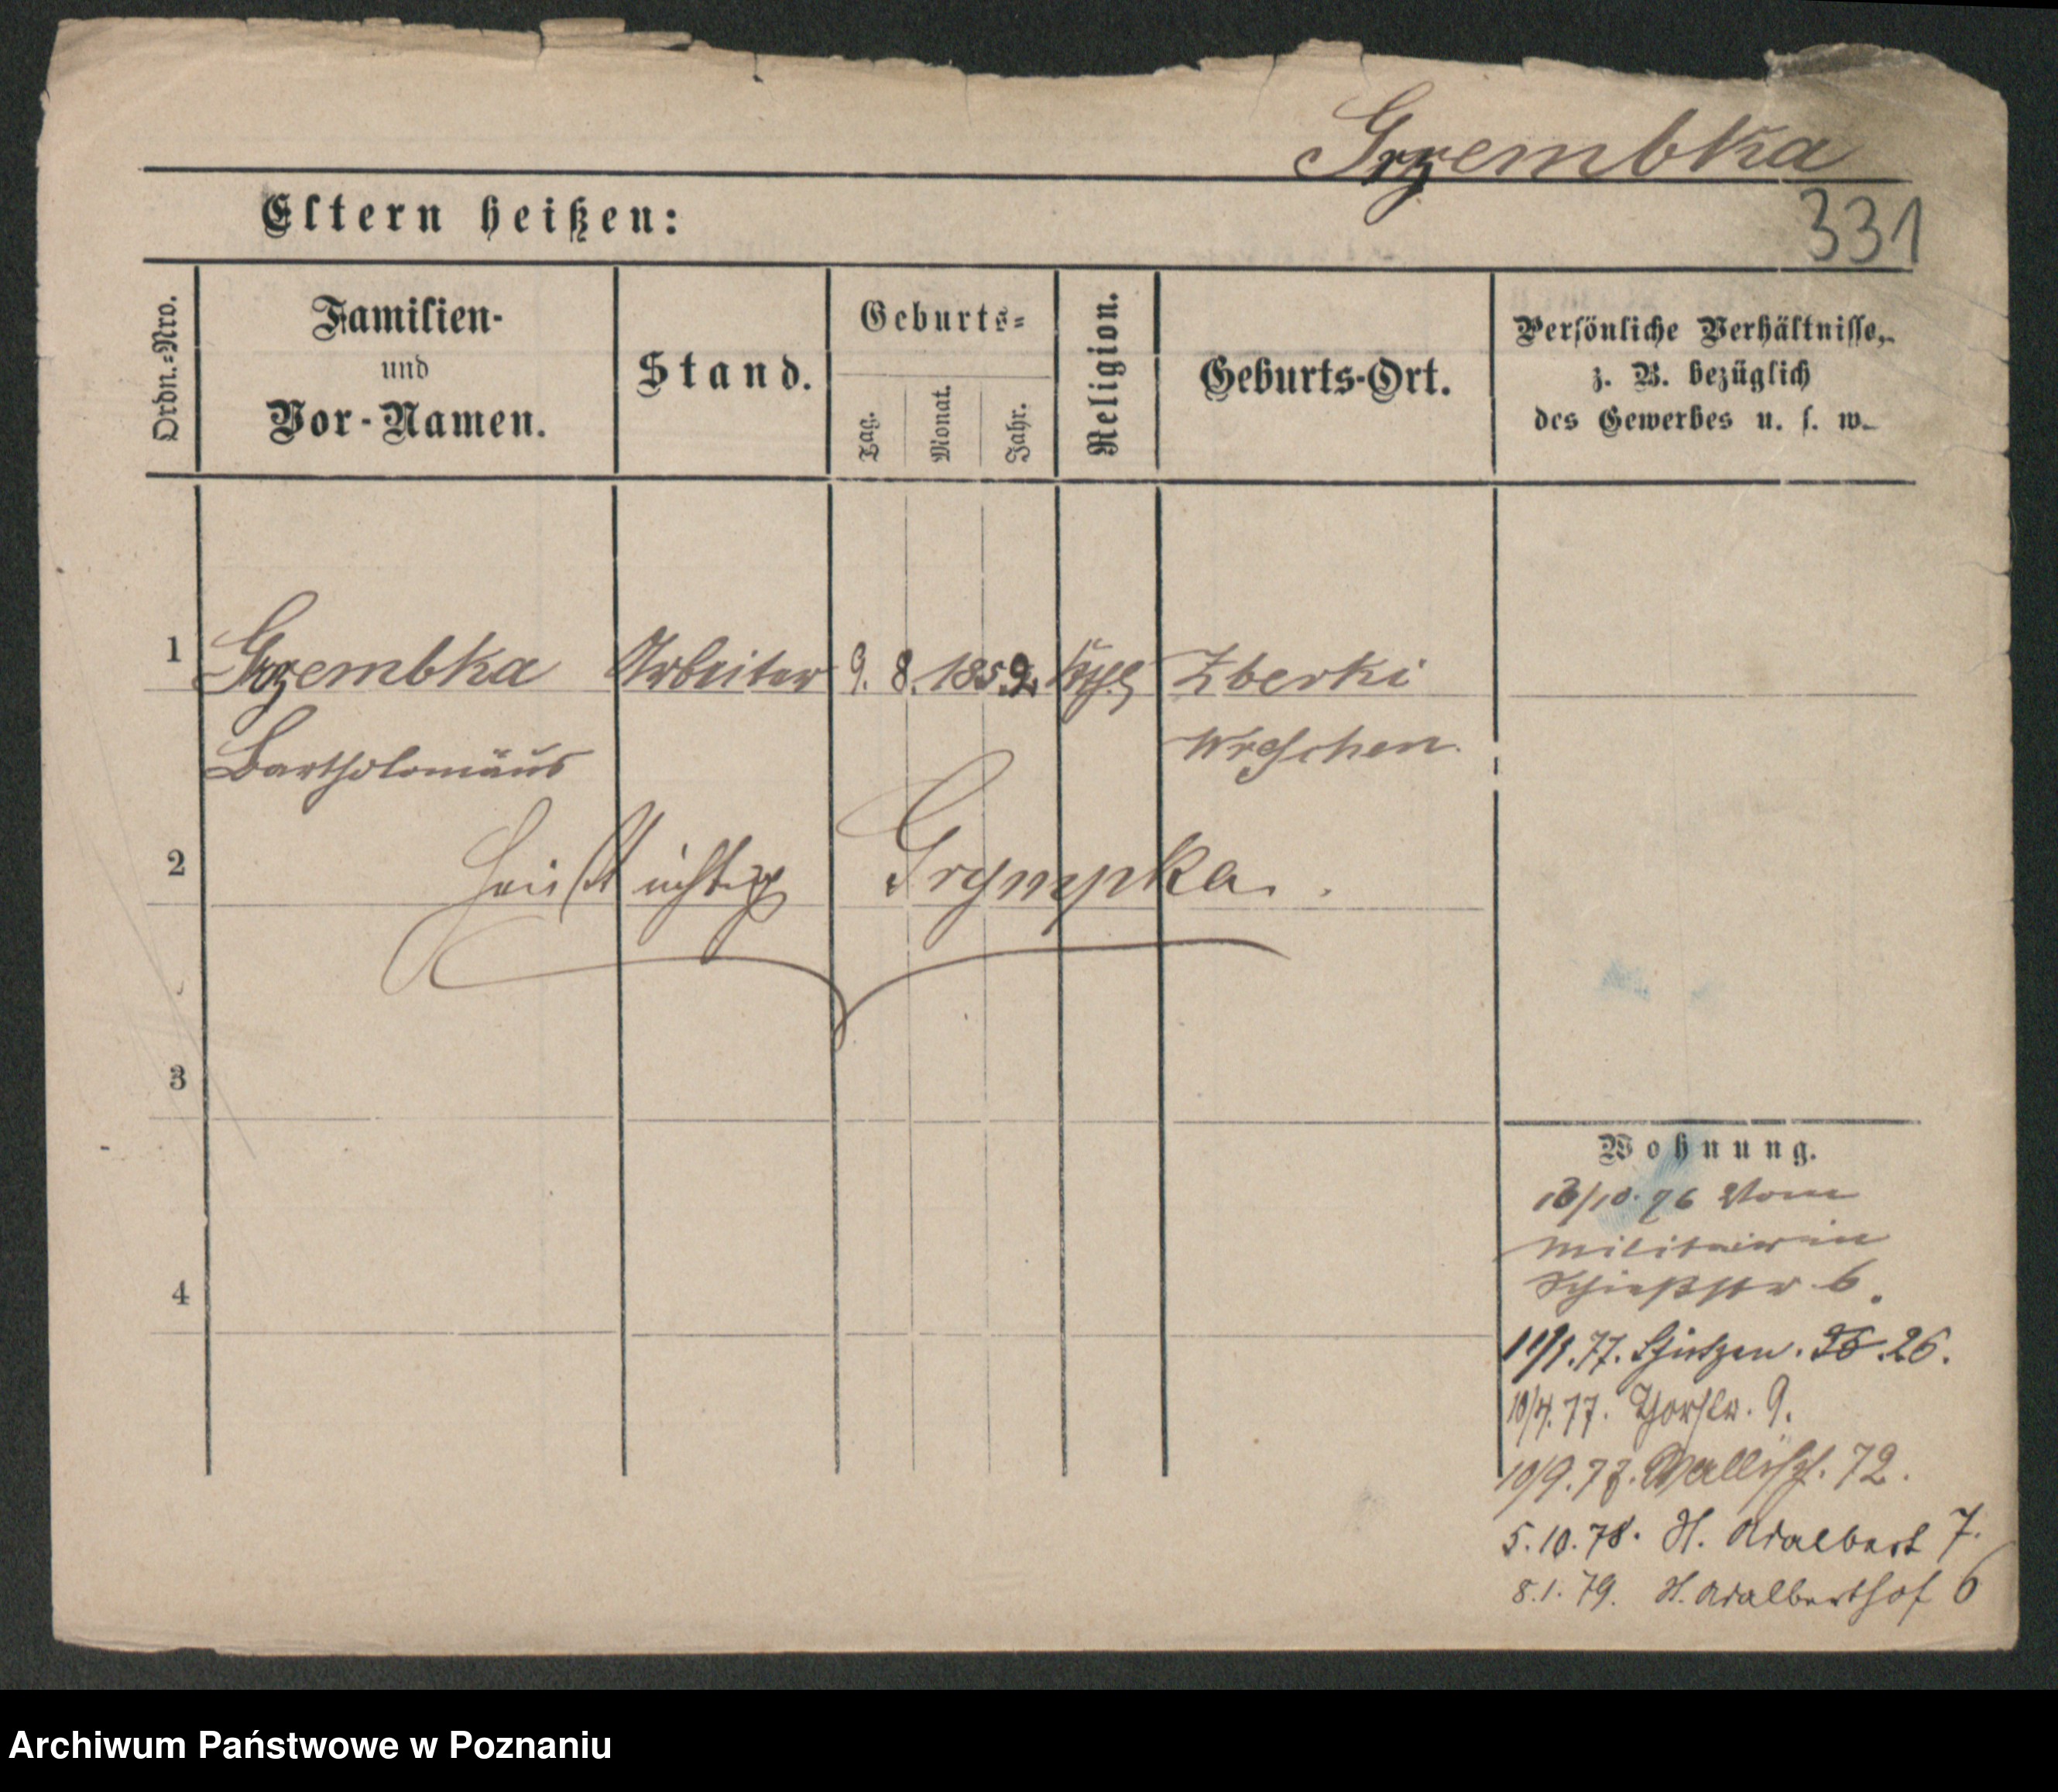 Grzembka
331
Eltern heißen:
Ordn.-Nro.
Familien-
und
Vor-Namen.
Stand.
Geburts-
Tag.
Monat.
Jahr.
Religion.
Geburts-Ort.
Persönliche Verhältnisse,
z. B. bezüglich
des Gewerbes u. s. w.
1 Grzembka Arbeiter 9. 8. 1859. Zberki
Bartholomäus Wreschen.
2 heißt richtig Grympka.
3
4
Wohnung.
/10. 76 Vom
Militair in
Schießstr 6.
11/1. 77. Schützen. 26.
10/4. 77. Thorstr. 9.
10/9. 77. Wallischei. 72.
5. 10. 78. St. Adalbert 7.
8. 1. 79. St. Adalberthof 6
Archiwum Państwowe w Poznaniu